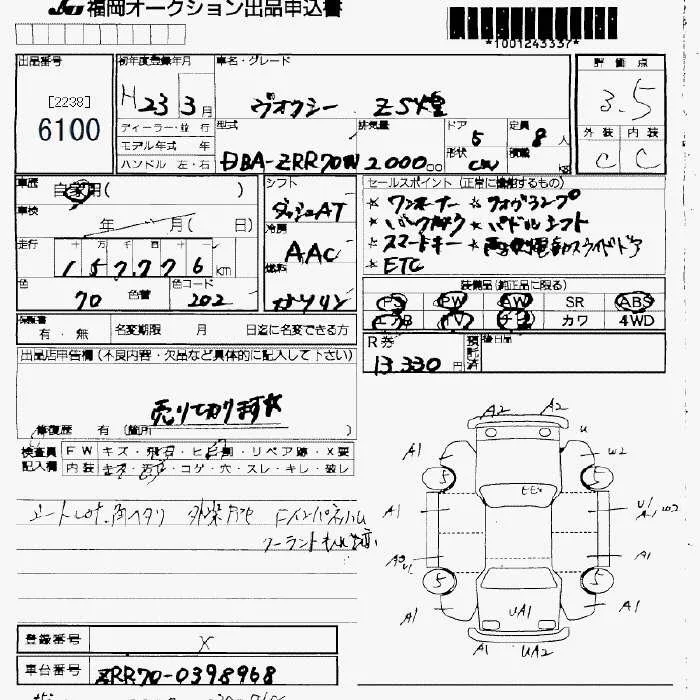 福岡オークション出品申込書
*1001243337*
出品番号
[2238]
6100
初年度登録年月
H 23 3月
ディーラー・並行
モデル年式 年
ハンドル 左・右
車名・グレード
ヴォクシー ZS煌
型式
DBA-ZRR70W
排気量
2000cc
ドア
5
形状
CW
定員
8人
積載
kg
評価点
3.5
外装 内装
C C
車歴
自家用( )
車検
年 月( 日)
走行
十 万 千 百 十 一
157776km
色
70
色替
色コード
202
シフト
ダッシュAT
冷房
AAC
燃料
ガソリン
セールスポイント(正常に機能するもの)
*ワンオーナー *フォグランプ
*バックカメラ *パドルシフト
*スマートキー *両側電動スライドドア
*ETC
装備品(純正品に限る)
PS PW AW SR ABS
エアB TV ナビ カワ 4WD
保証書
有・無
名変期限 月 日迄に名変できる方
R券
13,330円
預託済
後日品
出品店申告欄(不良内容・欠品など具体的に記入して下さい)
売りております☆
修復歴 有 (箇所
検査員記入欄
FW キズ・飛石・ヒビ割・リペア跡・X要
内装 キズ・汚れ・コゲ・穴・スレ・キレ・破レ
登録番号
X
車台番号
ZRR70-0398968
A2 A2
U
A1 W2
5 5
A1
A1
A1
5 5
A1 UA1 A1
A1 UA2